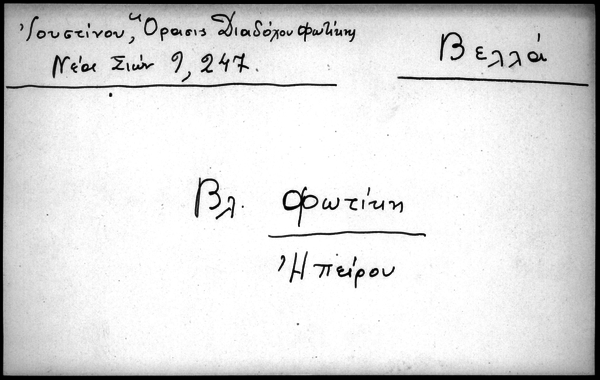 Ἰουστίνου, Ὅρασις Διαδόχου Φωτίκης
Νέα Σιών 9, 247.
Βελλᾶ
Βλ. Φωτίκη
Ἠπείρου